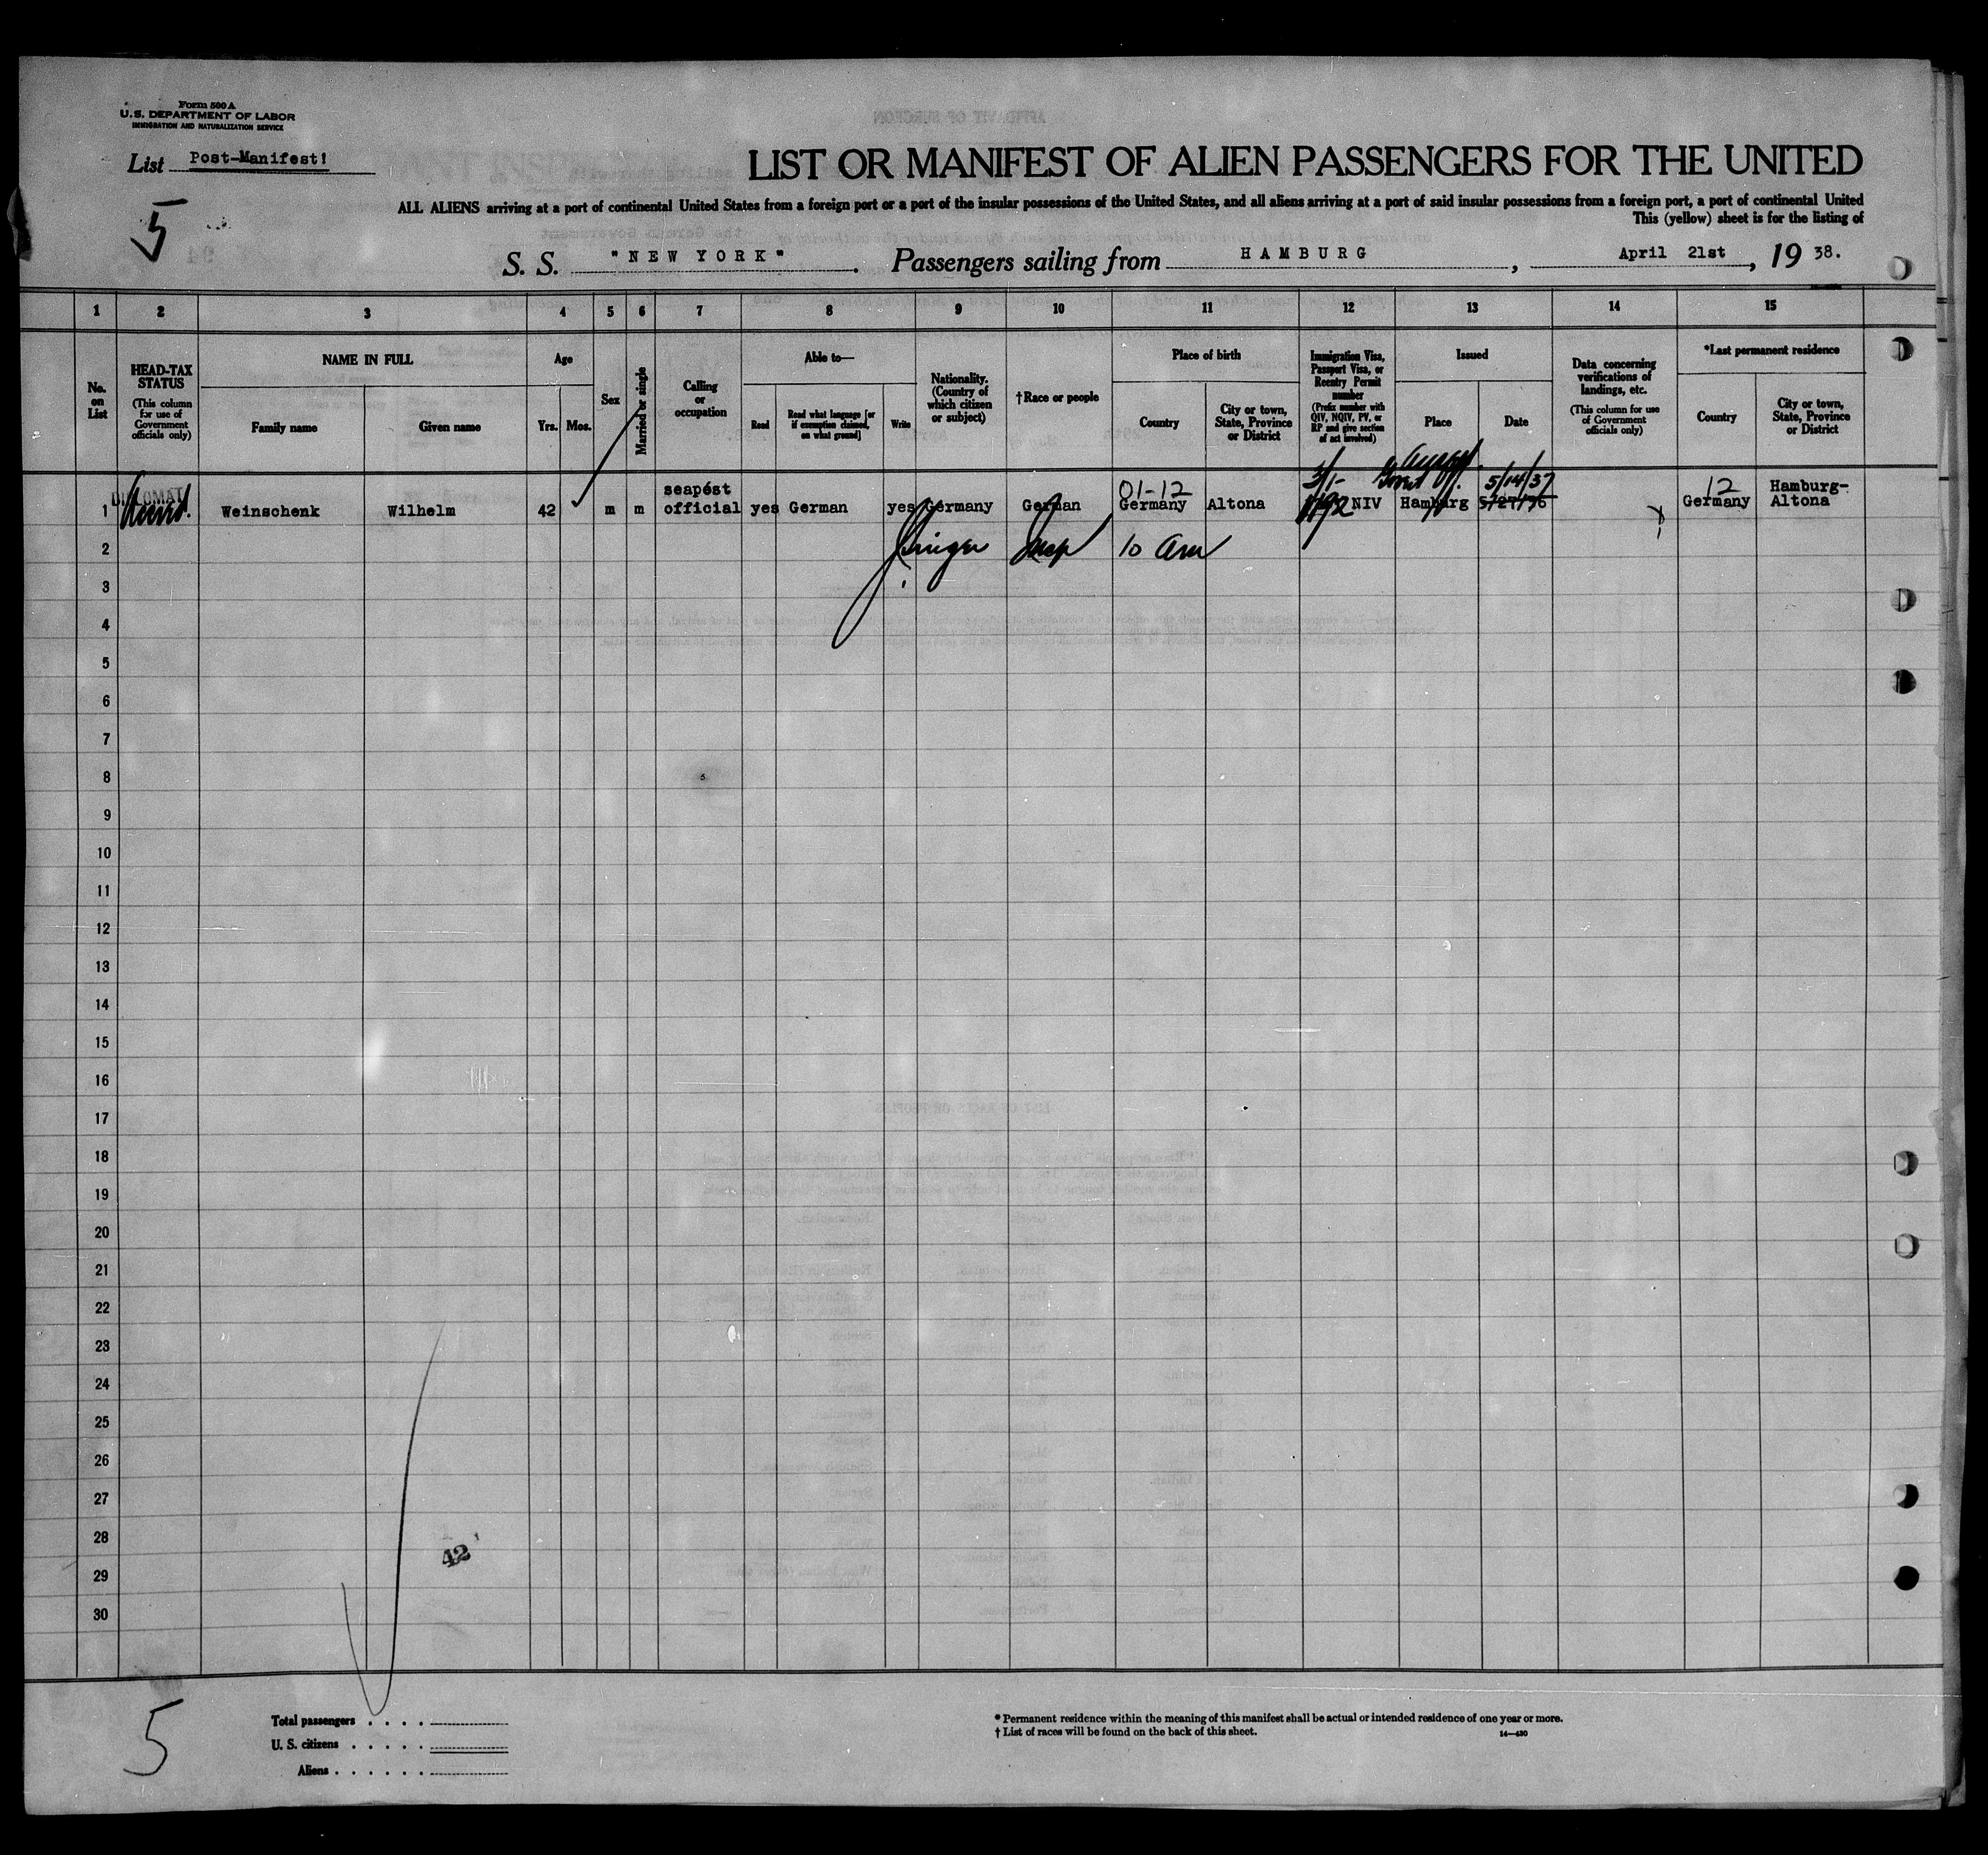 Form 500 A
U.S. DEPARTMENT OF LABOR
IMMIGRATION AND NATURALIZATION SERVICE
List Post-Manifest!
5
LIST OR MANIFEST OF ALIEN PASSENGERS FOR THE UNITED
ALL ALIENS arriving at a port of continental United States from a foreign port or a port of the insular possessions of the United States, and all aliens arriving at a port of said insular possessions from a foreign port, a port of continental United
This (yellow) sheet is for the listing of
S. S. "NEW YORK". Passengers sailing from HAMBURG, April 21st, 19 38.
1 2 3 4 5 6 7 8 9 10 11 12 13 14 15
No. on List
HEAD-TAX STATUS
(This column for use of Government officials only)
NAME IN FULL
Family name
Given name
Age
Yrs. Mos.
Sex
Married or single
Calling or occupation
Able to—
Read
Read what language [or if exemption claimed, on what ground]
Write
Nationality. (Country of which citizen or subject)
†Race or people
Place of birth
Country
City or town, State, Province or District
Immigration Visa, Passport Visa, or Reentry Permit number
(Prefix number with QIV, NQIV, PV, or RP and give section of act involved)
Issued
Place
Date
Data concerning verifications of landings, etc.
(This column for use of Government officials only)
*Last permanent residence
Country
City or town, State, Province or District
DIPLOMAT
3/1- Govt Off. 5/14/37
seapóst 01-12 12 Hamburg-
1 Weinschenk Wilhelm 42 m m official yes German yes Germany German Germany Altona NIV Hamburg 5/27/36 Germany Altona
2 Insp 10 am
3
4
5
6
7
8
9
10
11
12
13
14
15
16
17
18
19
20
21
22
23
24
25
26
27
28
42
29
30
5
Total passengers . . . .
U. S. citizens . . . . .
Aliens . . . . . .
* Permanent residence within the meaning of this manifest shall be actual or intended residence of one year or more.
† List of races will be found on the back of this sheet.
14—430